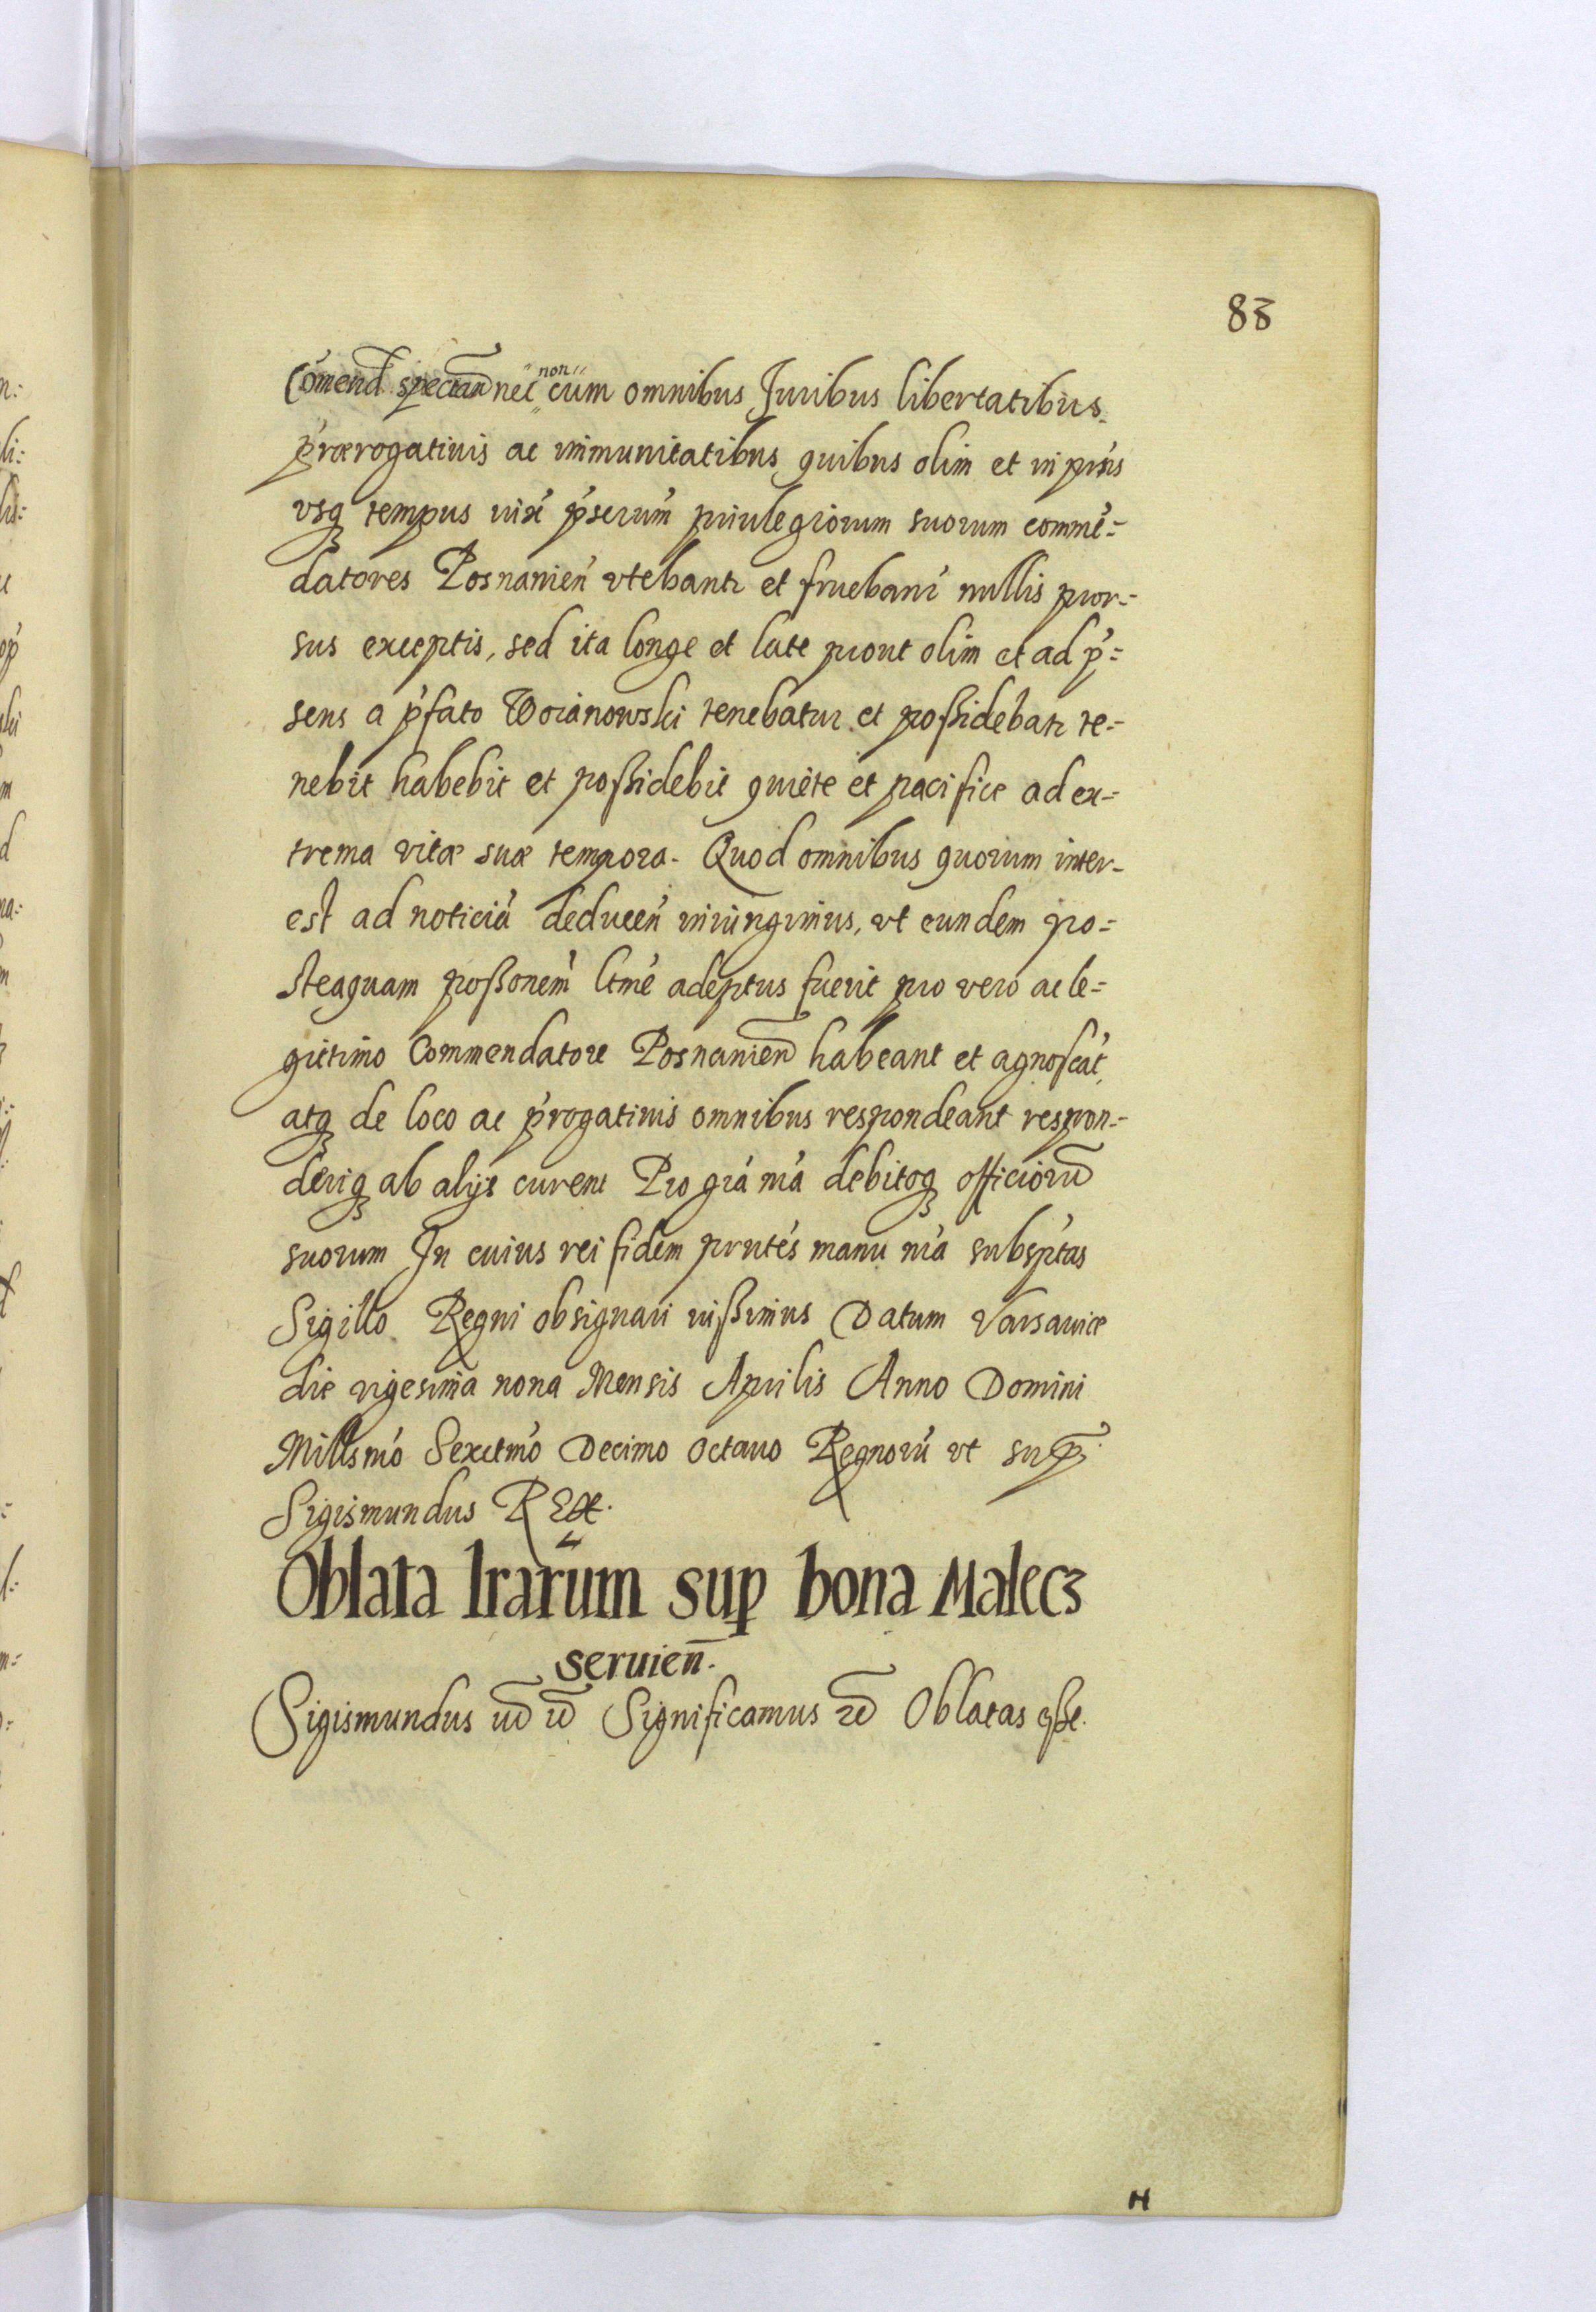 83
Com̃end spectan̄ nec non cum omnibus Juribus libertatibus
prærogatiuis ac immunitatibus quibus olim et in pn̄s
vsq tempus iux̄ p̄scrim̄ priuilegiorum suorum commē=
datores Posnanień vtebantr et fruebant̄ nullis pror=
sus exceptis, sed ita longe et late prout olim et ad p̄=
sens a p̄fato Woianowski tenebatur et poßidebatr te=
nebit habebit et poßidebit quiete et pacifice ad ex=
trema vitæ suæ tempora. Quod omnibus quorum inter-
est ad noticiā deducen̄ iniungimus, vt eundem po=
steaquam poßonem̄ ltmē adeptus fuerit pro vero ac le=
gittimo Commendatore Posnanien̄ habeant et agnoscāt,
atq de loco ac p̄rogatiuis omnibus respondeant respon=
deriq ab alijs curent Pro gr̄a nr̄a debitoq officiorū
suorum In cuius rei fidem pn̄tes manu nr̄a subsp̄tas
Sigillo Regni obsignari iußimus Datum Varsauiæ
die vigesima nona Mensis Aprilis Anno Domini
Millsmō Sexctmō Decimo octauo Regnorū vt sup̄.
Sigismundus REX.
Oblata lrarūm sup bona Malecz
seruien̄.
Sigismundus ut̄ ut̄ Significamus ec̄ Oblatas eße.
H